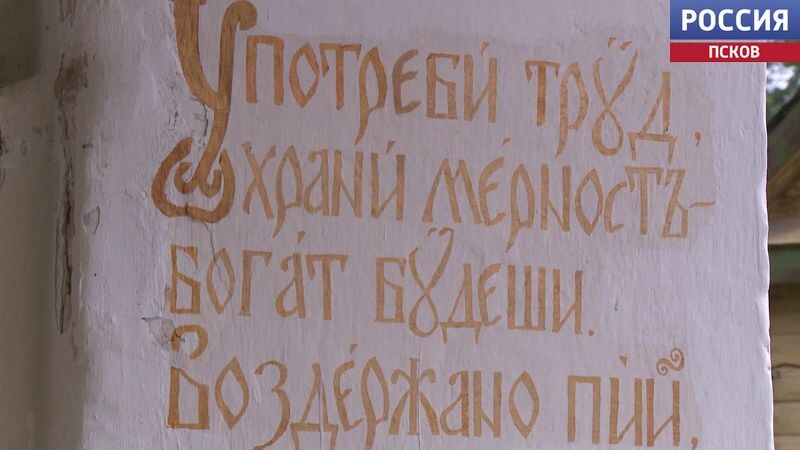 РОССИЯ
ПСКОВ
Употреби́ трꙋд,
храни́ ме́рностъ-
бога́т бꙋдеши.
Возде́ржано пі́й,